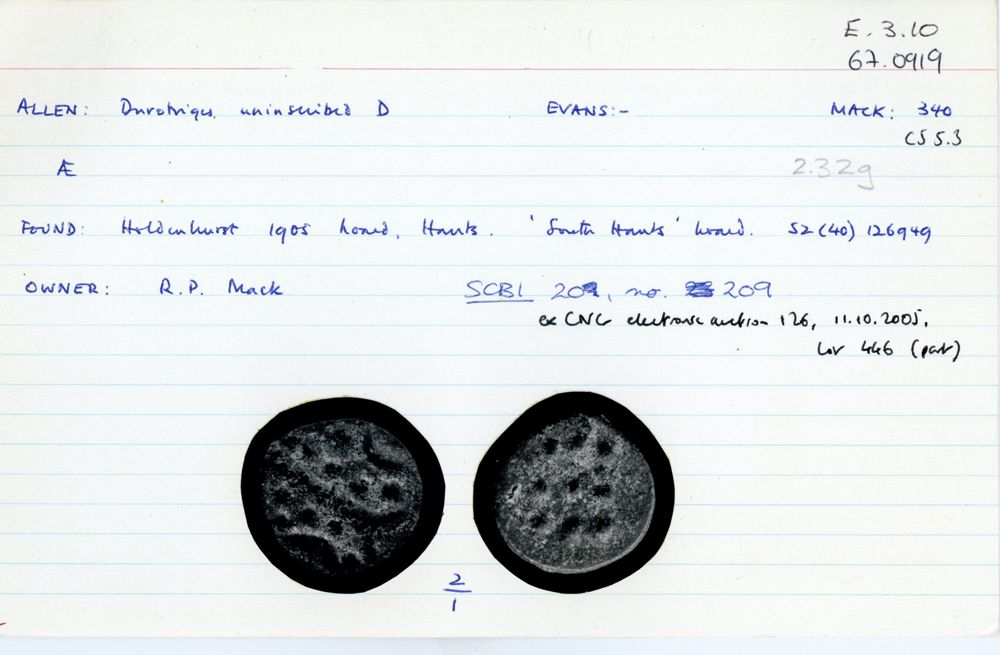 E. 3.10
67.0919
ALLEN: Durotriges uninscribed D EVANS:- MACK: 340
CS 5.3
Æ 2.32g
FOUND: Holdenhurst 1905 hoard, Hants. 'South Hants' hoard. SZ (40) 126949
OWNER: R.P. Mack SCBI 20, no. 209
ex CNG electronic auction 126, 11.10.2005,
lot 446 (part)
2
1